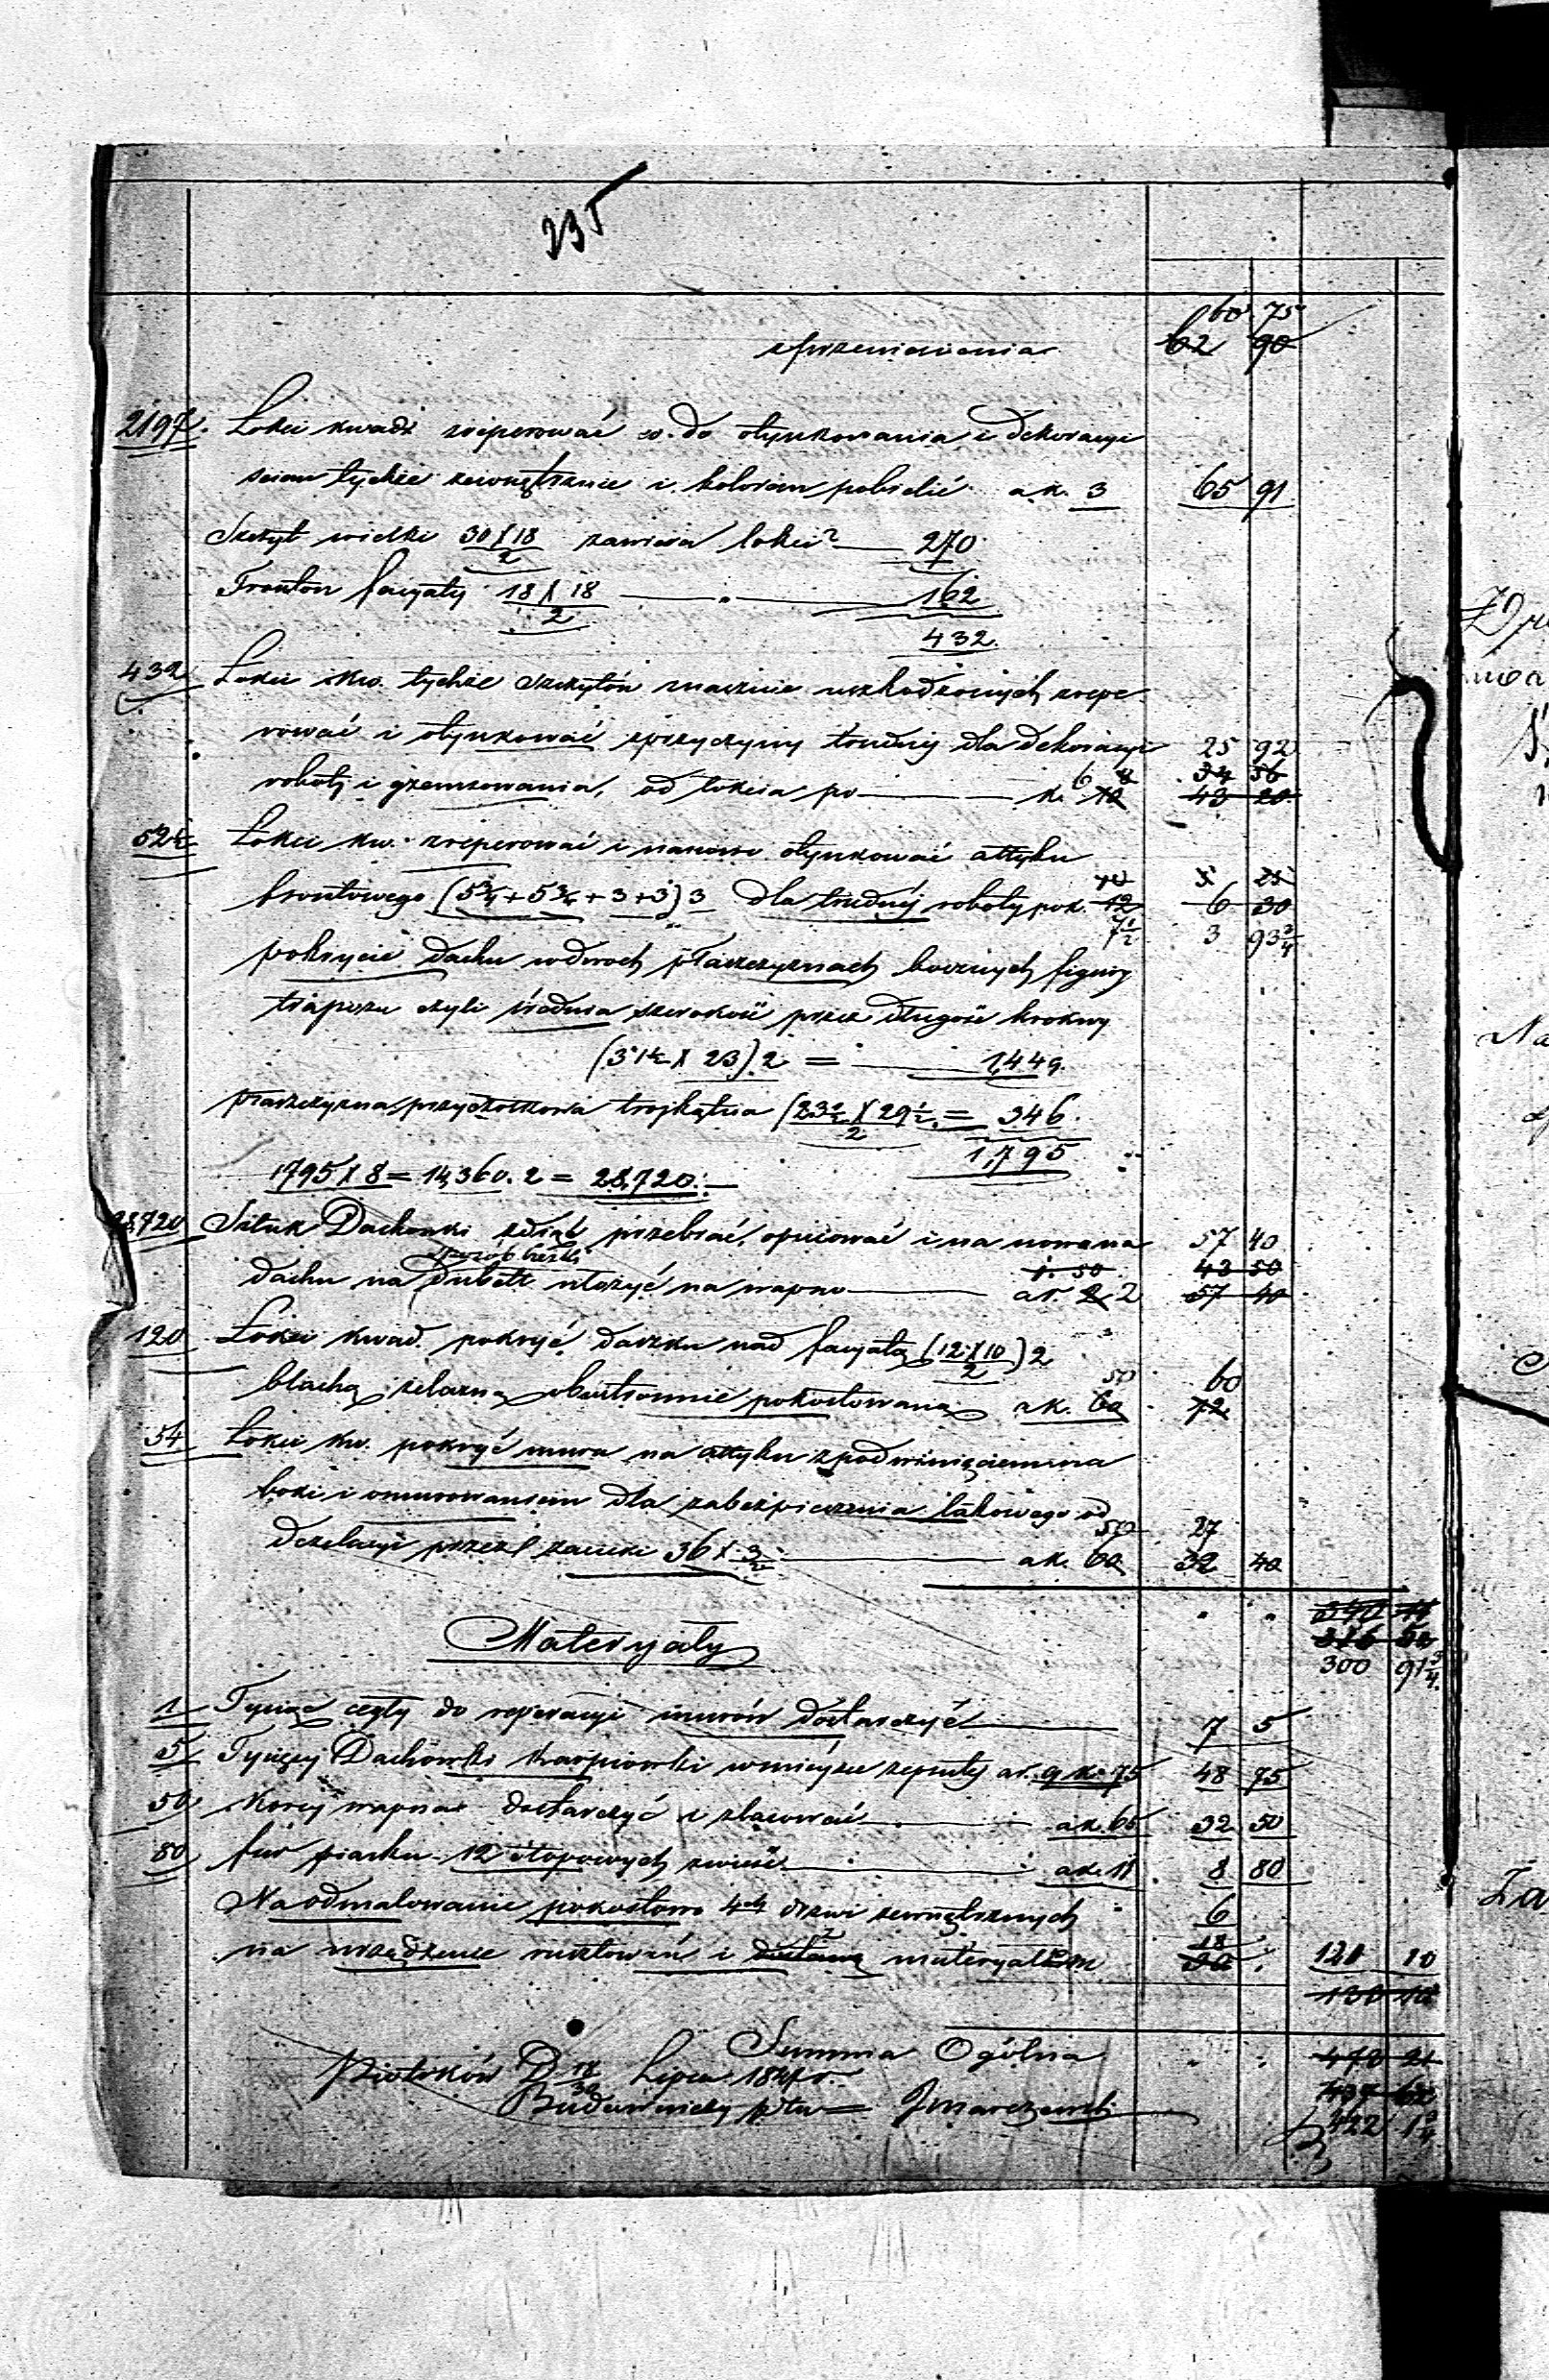 235
60 75
z przeniesienia 62 90
2197. Łokci kwadr zreperować co do otynkowania i dekoracyi
ścian tychże zewnętrznie i kolorem pobielić a k. 3 65 91
Szczyt wielki 30 X 18 / 2 zawiera łokci 270
Fronton facyaty 18 X 18 / 2 — " — 162
432.
432 Łokci kw. tychże szczytów znacznie uszkodzonych zrepe
rować i otynkować z przyczyny trudnej dla dekoracyi 25 92
34 56
roboty i gzemsowania, od łokcia po — k. 6 8 12 43 20
52½ Łokci kw. zreperować i nanowo otynkować attyku
10 5 25
frontowego (5¾ + 5¾ + 3 + 3) 3 dla trudnej roboty po k. 12 6 30
7½ 3 93¾
pokrycie dachu w dwoch płaszczyznach bocznych figury
trapezu czyli średnia szerokość przez długość krokwy
(31½ X 23) 2 = 1,449.
płaszczyzna przyczółkowa trojkątna (23½ X 29½ / 2 = 346.
1,795
1795 X 8 = 14,360. 2 = 28,720. —
28,720 Sztuk Dachowki zdjąć przebrać, opicować i na nowo na 57 40
1. 50 43 50
dachu na dubelt ułożyć na wapno — a r. 2. 2 57 40
120 Łokci kwad. pokryć daszku nad facyatą (12 X 10 / 2) 2
50 60
blachą żelazną obustronnie pokostowaną a k. 60 72
54 Łokci kw. pokryć muru na attyku z podwinięciem na
boki i omurowaniem dla zabezpieczenia takowego od
50 27
dezelacyi przez zacieki 36 X 3/2 — a k. 60 32 40
340 11
316 52
Materyały 300 91¾
1 Tysiąc cegły do reperacyi murów dostarczyć — 7 5
5 Tysięcy Dachówki Karpiowki w miejsce zepsutej a r. 9 k. 75 48 75
50 Korcy wapna dostarczyć i zlasować — a k. 65 32 50
80 fur piasku 12 stopowych zwieść — a k. 11 8 80
Na odmalowanie pokostowo 4ch drzwi zewnętrznych 6
18
na urządzenie rusztowań i dostawę materyałów 120 10
130 10
Summa Ogólna 470 21
Piotrków D 18/30 Lipca 184
437 62
Budowniczy ptu 422 1¾